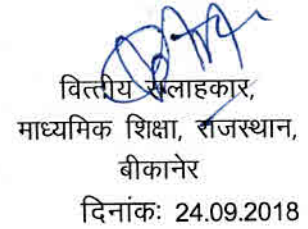 वित्तीय सलाहकार,
माध्यमिक शिक्षा, राजस्थान,
बीकानेर
दिनांकः 24.09.2018